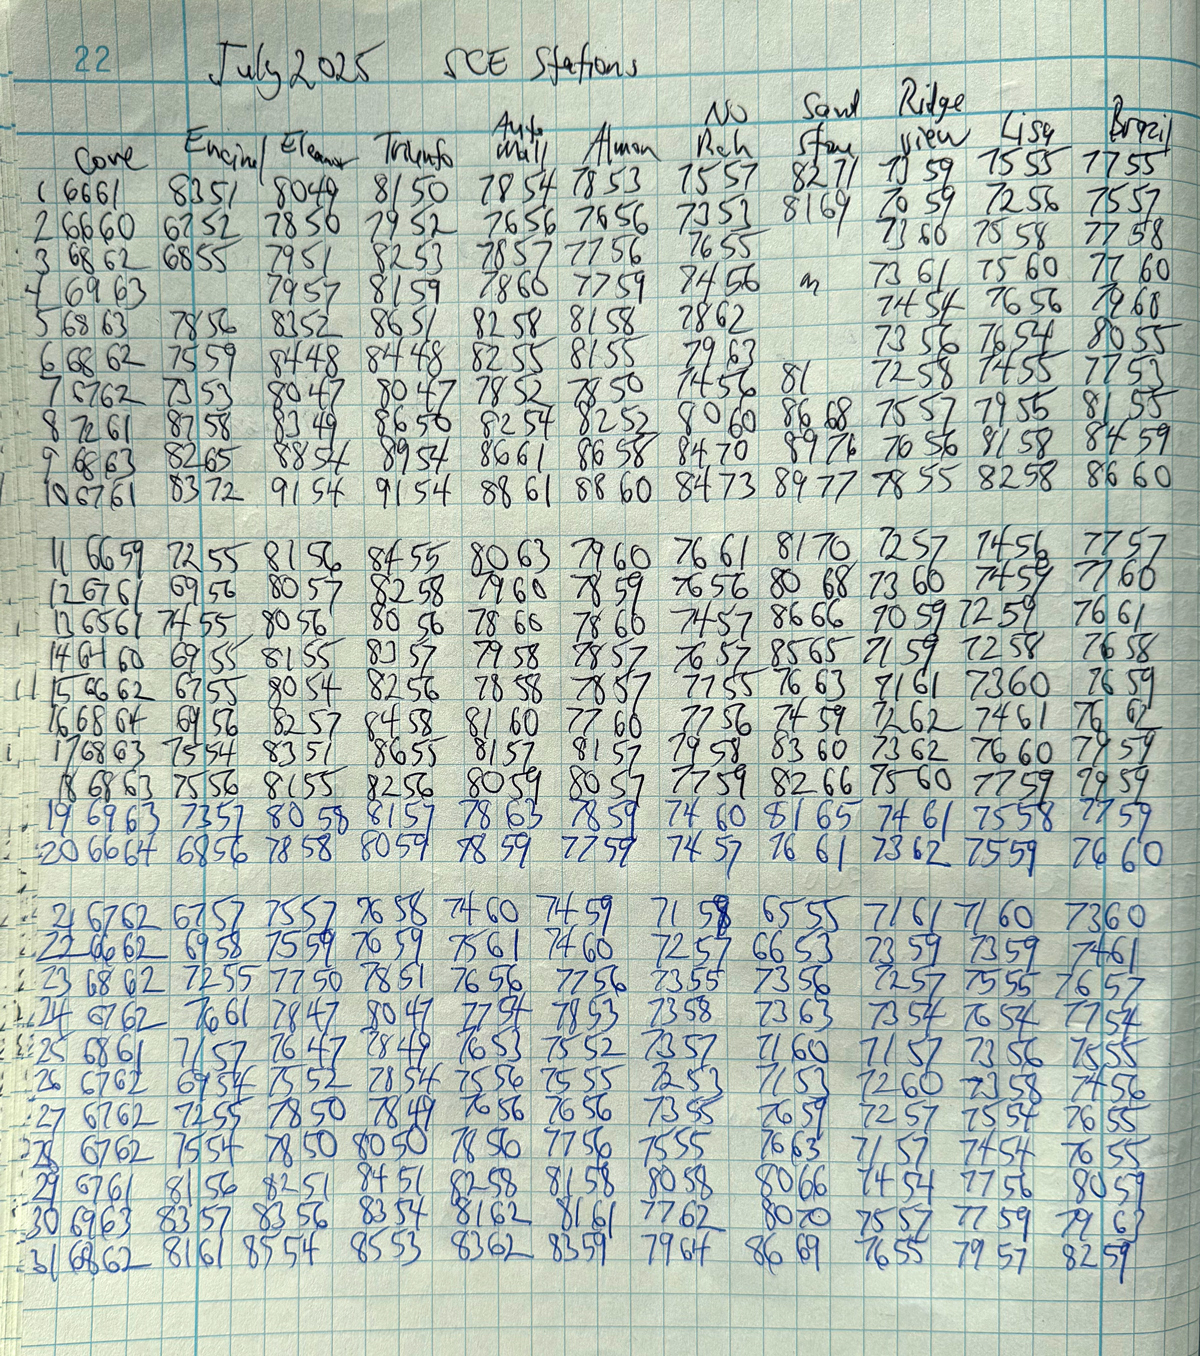 22 July 2025 SCE Stations
NO Sand Ridge
Cove Encinal Eleanor Triunfo Auto Mall Almon Rch Stone view Lisa Brazil
1 6661 8351 8049 8150 7854 7853 7557 8271 7359 7555 7755
2 6660 6752 7850 7952 7656 7656 7353 8169 7059 7256 7557
3 6862 6855 7951 8253 7857 7756 7655 7360 7558 7758
4 6963 7957 8159 7860 7759 7456 m 7361 7560 7760
5 6863 7856 8352 8651 8258 8158 7862 7454 7656 7960
6 6862 7559 8448 8448 8255 8155 7963 7356 7654 8055
7 6762 7353 8047 8047 7852 7850 7456 81 7258 7455 7753
8 7261 8758 8349 8650 8254 8252 8060 8668 7557 7955 8155
9 6863 8265 8854 8954 8661 8658 8470 8976 7656 8158 8459
10 6761 8372 9154 9154 8861 8860 8473 8977 7855 8258 8660
11 6659 7255 8156 8455 8063 7960 7661 8170 7257 7456 7757
12 6761 6956 8057 8258 7960 7859 7656 8068 7360 7459 7760
13 6561 7455 8056 8056 7860 7860 7457 8666 7059 7259 7661
14 6460 6955 8155 8357 7958 7857 7657 8565 7159 7258 7658
15 6662 6755 8054 8256 7858 7857 7755 7663 7161 7360 7659
16 6864 6956 8257 8458 8160 7760 7756 7459 7262 7461 7662
17 6863 7554 8351 8655 8157 8157 7958 8360 7362 7660 7959
18 6863 7556 8155 8256 8059 8057 7759 8266 7560 7759 7959
19 6963 7357 8058 8157 7863 7859 7460 8165 7461 7558 7759
20 6664 6856 7858 8059 7859 7759 7457 7661 7362 7559 7660
21 6762 6757 7557 7658 7460 7459 7158 6555 7161 7160 7360
22 6662 6958 7559 7659 7561 7460 7257 6653 7359 7359 7461
23 6862 7255 7750 7851 7656 7756 7355 7356 7257 7555 7657
24 6762 7661 7847 8047 7754 7853 7358 7363 7354 7654 7754
25 6861 7157 7647 7849 7653 7552 7357 7160 7157 7356 7555
26 6762 6954 7552 7854 7556 7555 7253 7153 7260 7358 7456
27 6762 7255 7850 7849 7656 7656 7355 7659 7257 7554 7655
28 6762 7554 7850 8050 7856 7756 7555 7663 7157 7454 7655
29 6761 8156 8251 8451 8258 8158 8058 8066 7454 7756 8059
30 6963 8357 8356 8354 8162 8161 7762 8070 7557 7759 7963
31 6862 8161 8554 8553 8362 8359 7964 8669 7655 7957 8259